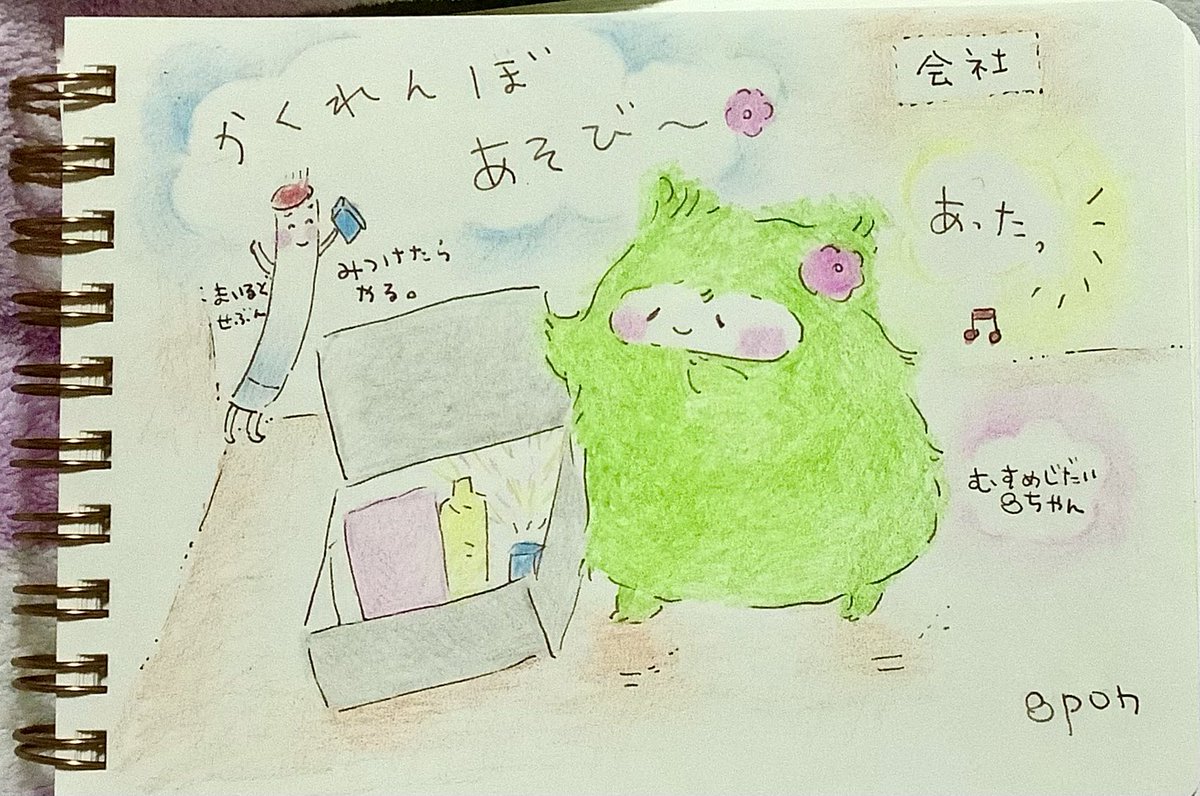 かくれんぼ
あそび〜
会社
あった。
みつけたら
やる。
まいるど
せぶん
むすめじだい
8ちゃん
8pon